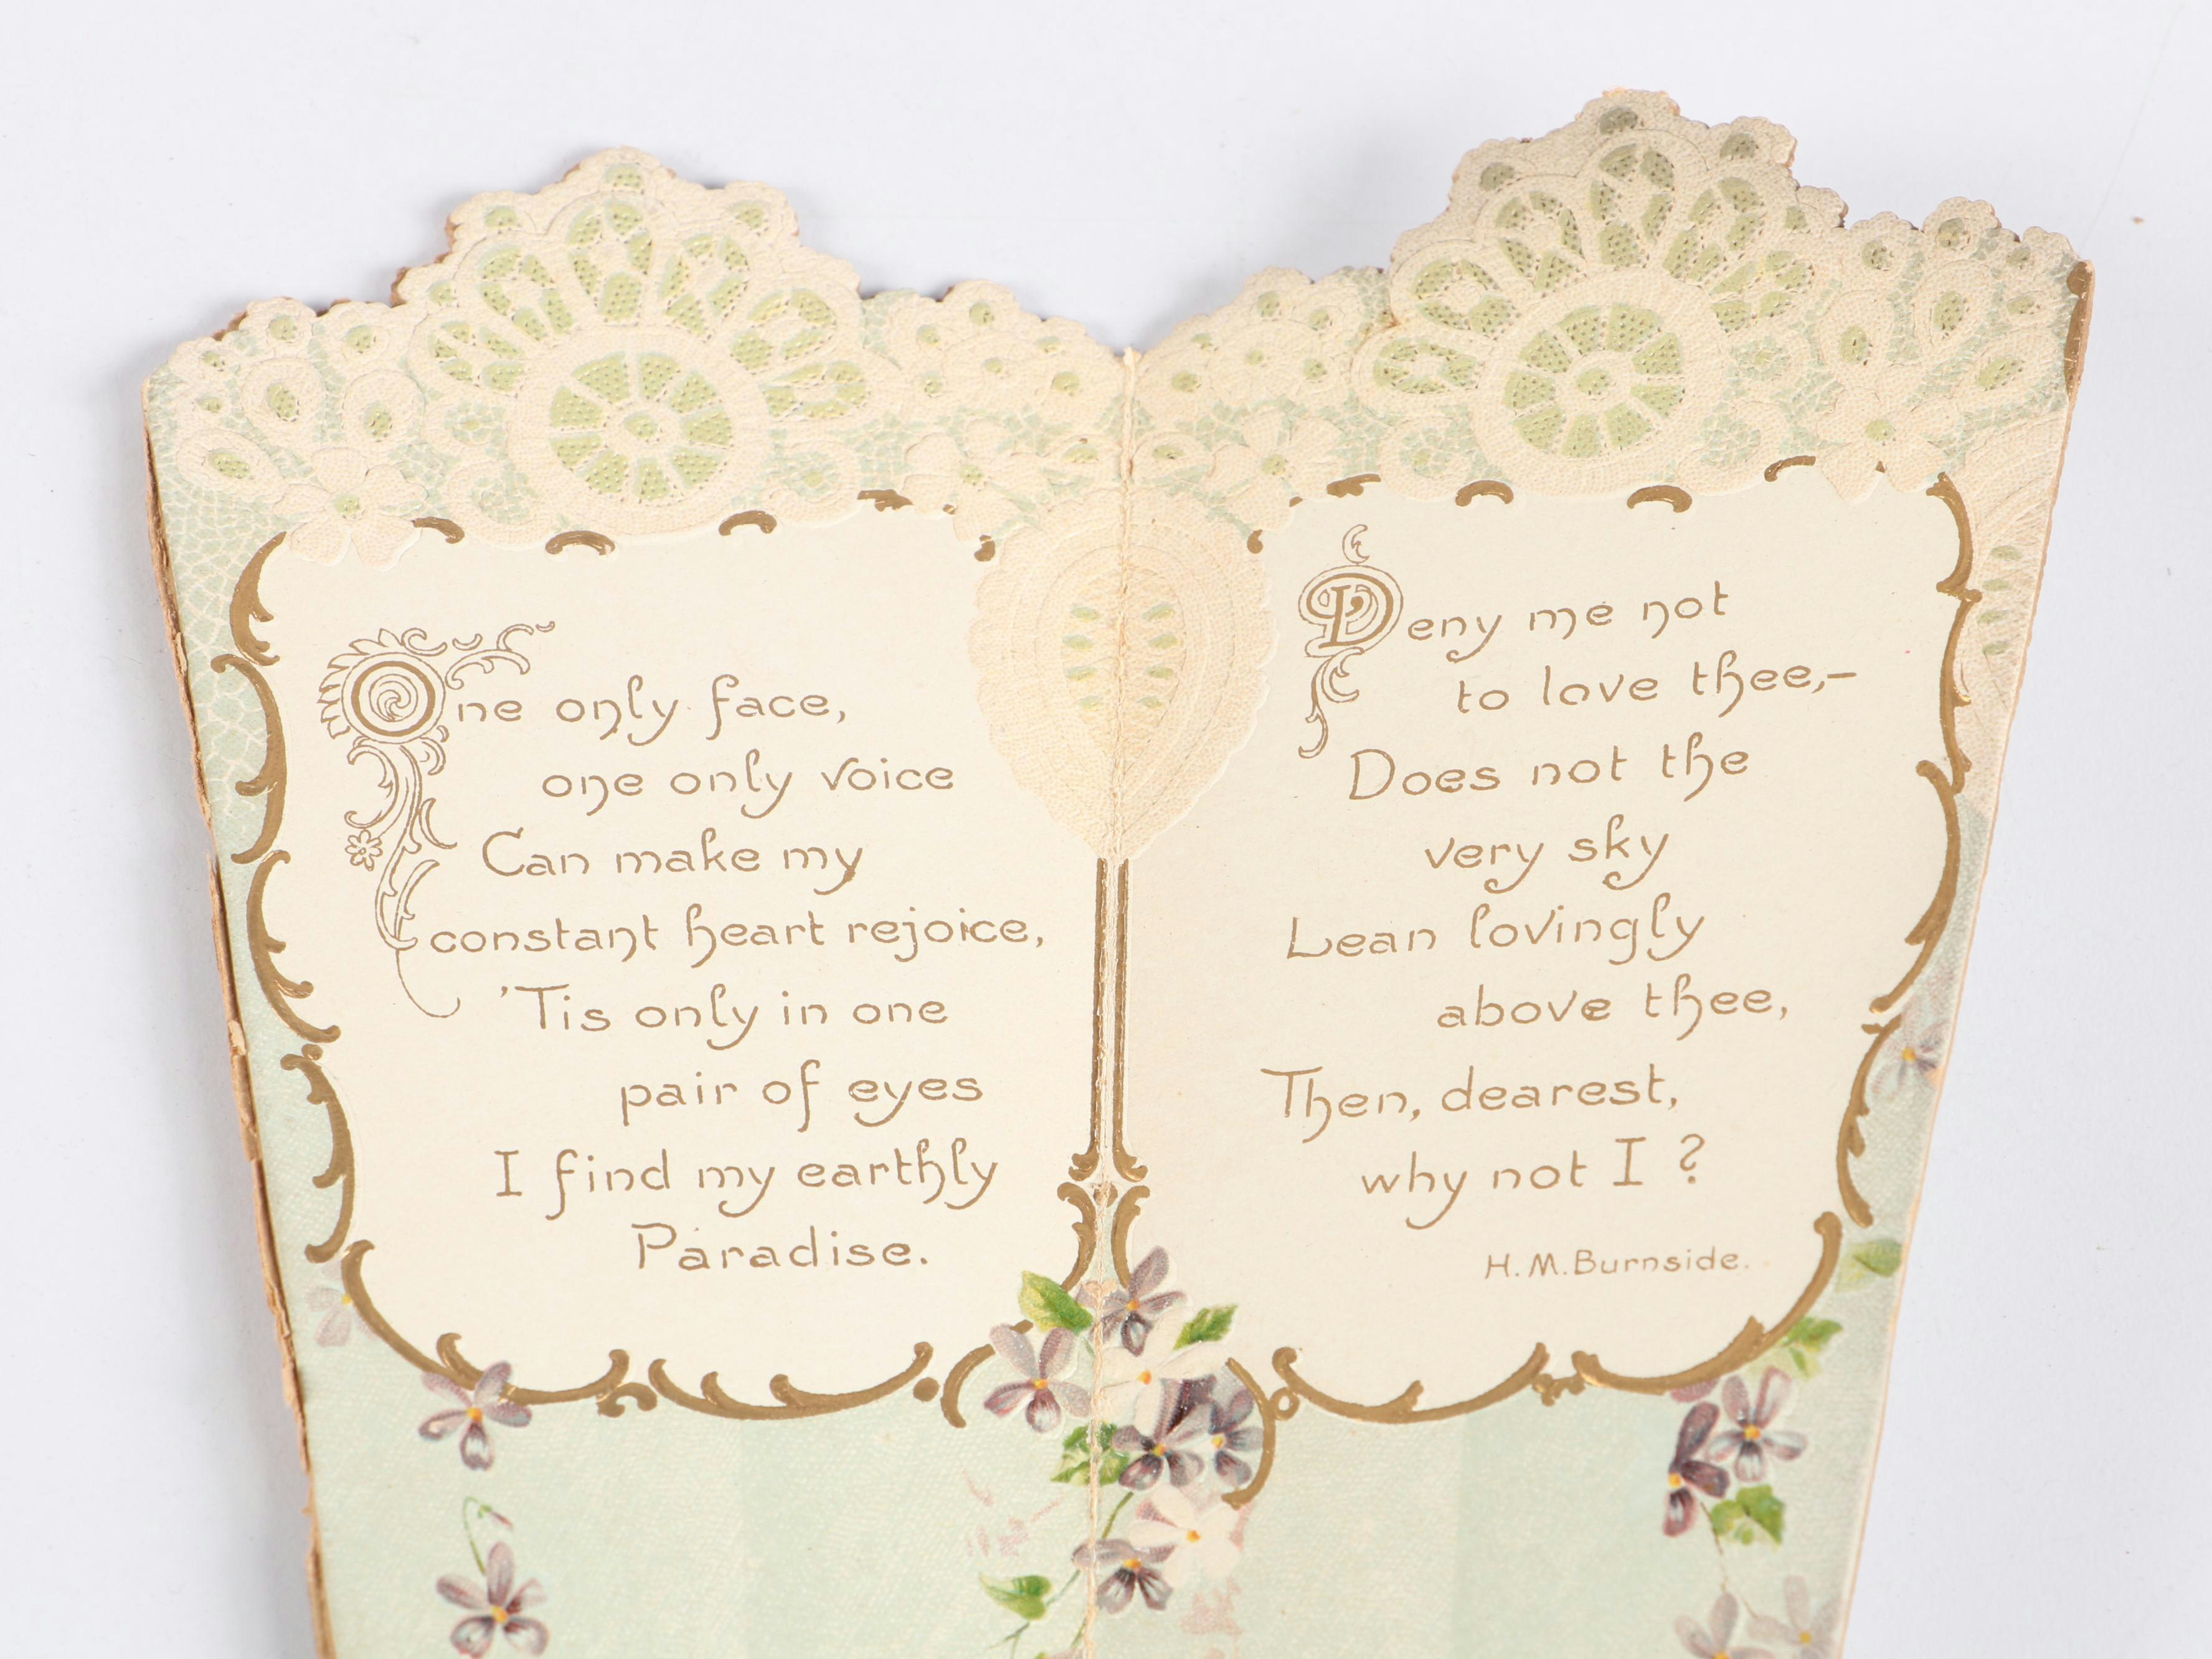 One only face,
one only voice
Can make my
constant heart rejoice,
'Tis only in one
pair of eyes
I find my earthly
Paradise.
Deny me not
to love thee,–
Does not the
very sky
Lean lovingly
above thee,
Then, dearest,
why not I?
H. M. Burnside.